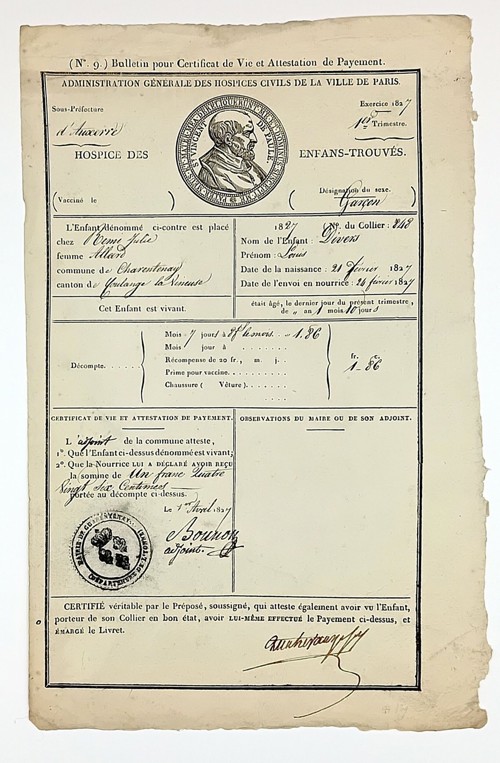 (Nº. 9.) Bulletin pour Certificat de Vie et Attestation de Payement.
ADMINISTRATION GÉNÉRALE DES HOSPICES CIVILS DE LA VILLE DE PARIS.
Sous-Préfecture
d'Auxerre
Exercice 1827
1er Trimestre.
S. VINCENT DE PAULE.
HOSPICE DES ENFANS-TROUVÉS.
(Vacciné le )
Désignation du sexe.
( Garçon )
L'Enfant dénommé ci-contre est placé
chez Remi Julie
femme Allard
commune de Charentenay
canton de Coulange la Vineuse
Cet Enfant est vivant.
1827 Nº. du Collier: 848
Nom de l'Enfant: Divers
Prénom: Louis
Date de la naissance: 21 février 1827
Date de l'envoi en nourrice: 24 février 1827
était âgé, le dernier jour du présent trimestre,
de „ an 1 mois 10 jours
Décompte.
Mois 7 jours à 8f le mois. 1.86
Mois jour à
Récompense de 20 fr., m. j.
Prime pour vaccine.
Chaussure ( Vêture).
fr. c.
1-86
CERTIFICAT DE VIE ET ATTESTATION DE PAYEMENT.
L'adjoint de la commune atteste,
1º. Que l'Enfant ci-dessus dénommé est vivant;
2º. Que la Nourrice LUI A DÉCLARÉ AVOIR REÇU
la somme de Un franc Quatre
Vingt Six Centimes
portée au décompte ci-dessus.
Le 1er Avril 1827
adjoint.
OBSERVATIONS DU MAIRE OU DE SON ADJOINT.
CERTIFIÉ véritable par le Préposé, soussigné, qui atteste également avoir vu l'Enfant,
porteur de son Collier en bon état, avoir LUI-MÊME EFFECTUÉ le Payement ci-dessus, et
ÉMARGÉ le Livret.